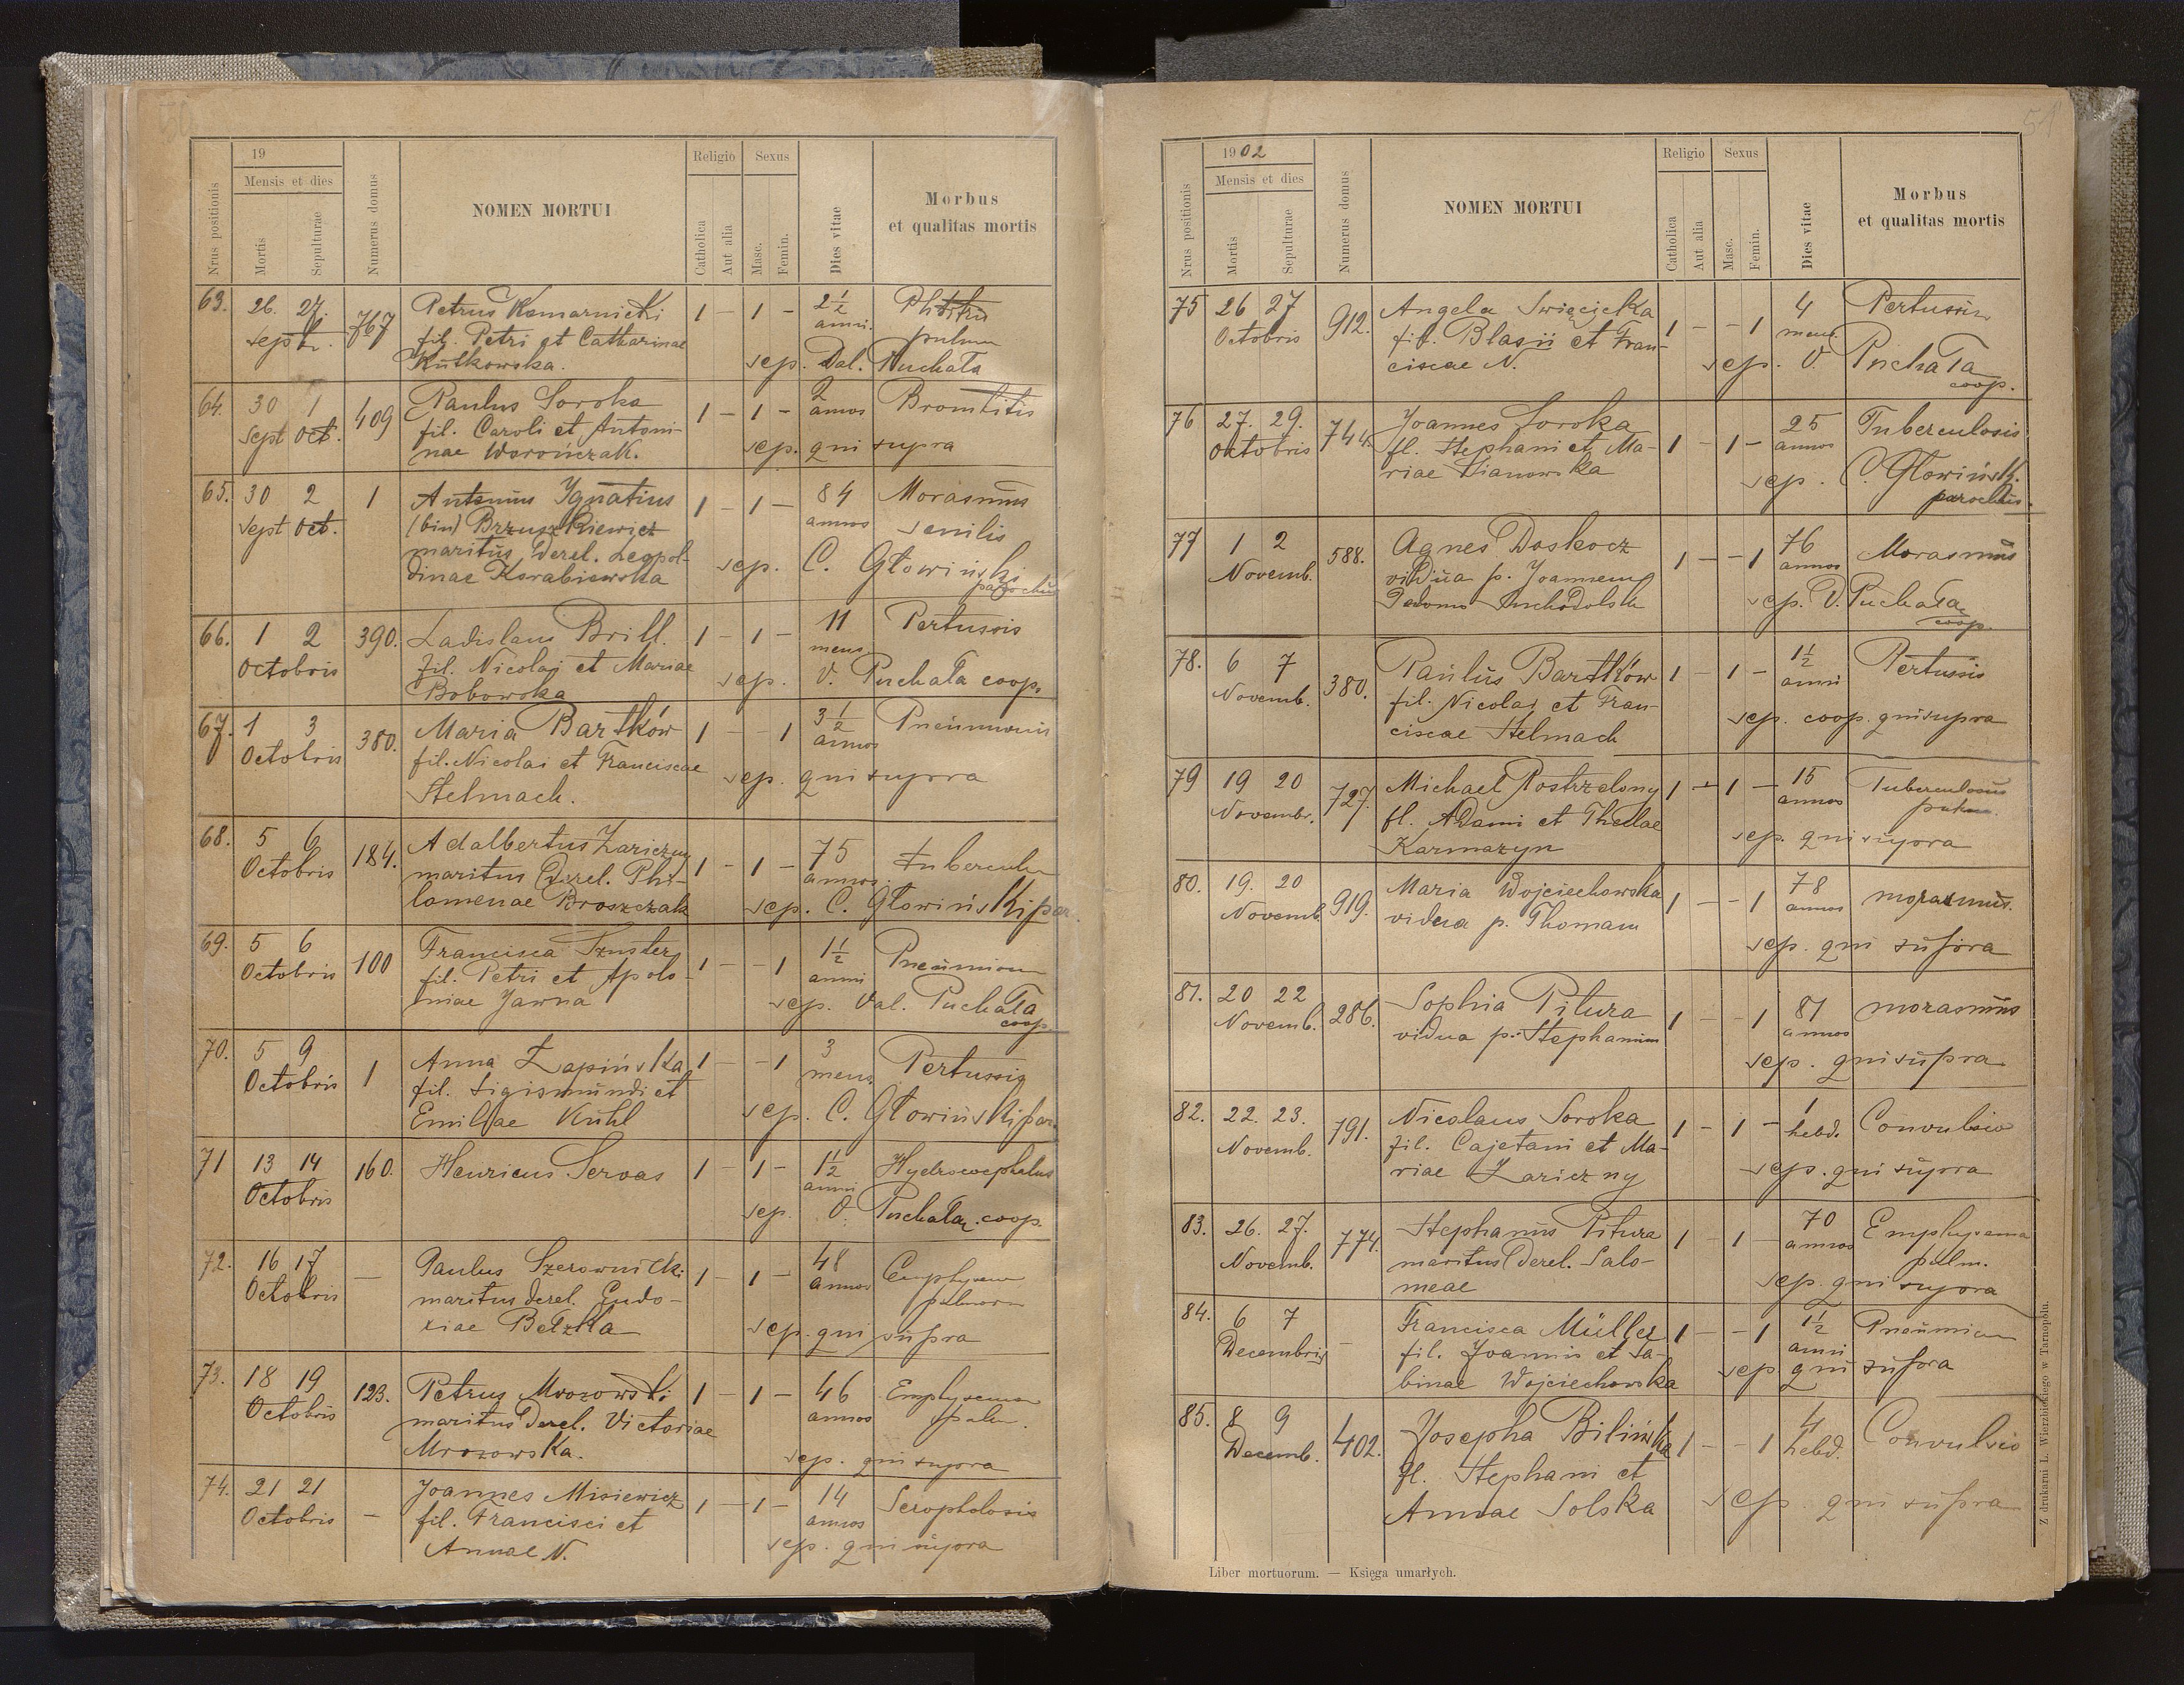 19
Mensis et dies
Religio Sexus
Nrus positionis
Mortis
Sepulturae
Numerus domus
NOMEN MORTUI
Catholica
Aut alia
Masc.
Femin.
Dies vitae
Morbus
et qualitas mortis
63. 26. 27. 767 Petrus Komarnicki 1 — 1 — 2½
Sept. fil. Petri et Catharinae anni.
Kutkowska. sep. Val. Puchała
64. 30 1 409 Paulus Soroka 1 — 1 — 2 Bronchitis
Sept Oct. fil. Caroli et Antoni- annos
nae Worończak. sep. qui supra
65. 30 2 1 Antonius Ignatius 1 — 1 — 84 Morasmus
Sept Oct. (bin) Brzuszkiewicz annos senilis
maritus derel. Leopol- sep. C. Głowiński
dinae Korabiewska parochus
66. 1 2 390. Ladislaus Brill. 1 — 1 — 11 Pertussis
Octobris fil. Nicolai et Mariae mens.
Bobowska sep. V. Puchała coop.
67. 1 3 380. Maria Bartków 1 — — 1 3½ Pneumonia
Octobris fil. Nicolai et Franciscae annos
Stelmach. sep. qui supra
68. 5 6 184. Adalbertus Zariczny 1 — 1 — 75
Octobris maritus derel. Phi- annos.
lomenae Broszczak sep. C. Głowiński par.
69. 5 6 100 Francisca Szuster 1 — — 1 1½
Octobris fil. Petri et Apolo- anni
niae Jawna sep. Val. Puchała
coop
70. 5 9 1 Anna Łapińska 1 — — 1 3 Pertussis
Octobris fil. Sigismundi et mens.
Emiliae Kühl sep. C. Głowiński par.
71 13 14 160. Henricus Servas 1 — 1 — 1½ Hydrocephalus
Octobris anni
sep. V. Puchała. coop.
72. 16 17 — Paulus Szerownicki 1 — 1 — 48
Octobris maritus derel. Eudo- annos
xiae Bełzka sep. qui supra
73. 18 19 123. Petrus Mrozowski 1 — 1 — 46 Emphysema
Octobris maritus derel. Victoriae annos pulm.
Mrozowska. sep. qui supra
74. 21 21 — Joannes Misiewicz 1 — 1 — 14 Scropholosis
Octobris fil. Francisci et annos
Annae N. sep. qui supra
51
1902
Mensis et dies
Religio Sexus
Nrus positionis
Mortis
Sepulturae
Numerus domus
NOMEN MORTUI
Catholica
Aut alia
Masc.
Femin.
Dies vitae
Morbus
et qualitas mortis
75 26 27 912. Angela Swięcicka 1 — — 1 4 Pertussis
Octobris fil. Blasii et Fran- mens.
ciscae N. sep. V. Puchała
coop.
76 27. 29. 744. Joannes Soroka 1 — 1 — 25 Tuberculosis
Octobris fl. Stephani et Ma- annos
riae sep. C. Głowiński.
parochus.
77 1 2 588. Agnes Doskocz 1 — — 1 76 Morasmus
Novemb. vidua p. Joannem annos
sep. V. Puchała
coop.
78. 6 7 380. Paulus Bartków 1 — 1 — 1½ Pertussis
Novemb. fil. Nicolai et Fran- anni
ciscae Stelmach sep. coop. qui supra
79 19 20 727. Michael Postrzelony 1 — 1 — 15 Tuberculosis
Novembr. fl. Adami et Theclae annos
Karmazyn sep. qui supra
80. 19. 20 919. Maria Wojciechowska 1 — — 1 78 morasmus.
Novemb. vidua p. Thomam annos
sep. qui supra
81. 20 22 286. Sophia Pitura 1 — — 1 81 morasmus
Novemb. vidua p. Stephanum annos
sep. qui supra
82. 22. 23. 791. Nicolaus Soroka 1 — 1 — 1 Convulsio
Novemb. fil. Cajetani et Ma- hebd.
riae Zariczny sep. qui supra
83. 26. 27. 774. Stephanus Pitura 1 — 1 — 70 Emphysema
Novemb. maritus derel. Salo- annos pulm.
meae sep. qui supra
84. 6 7 — Francisca Müller 1 — — 1 1½
Decembris fil. Joannis et Sa- anni
binae Wojciechowska sep qui supra
85. 8 9 402. Josepha Bilińska 1 — — 1 4 Convulsio
Decemb. fl. Stephani et hebd.
Annae Solska sep. qui supra
Liber mortuorum. — Księga umarłych.
Z drukarni L. Wierzbickiego w Tarnopolu.